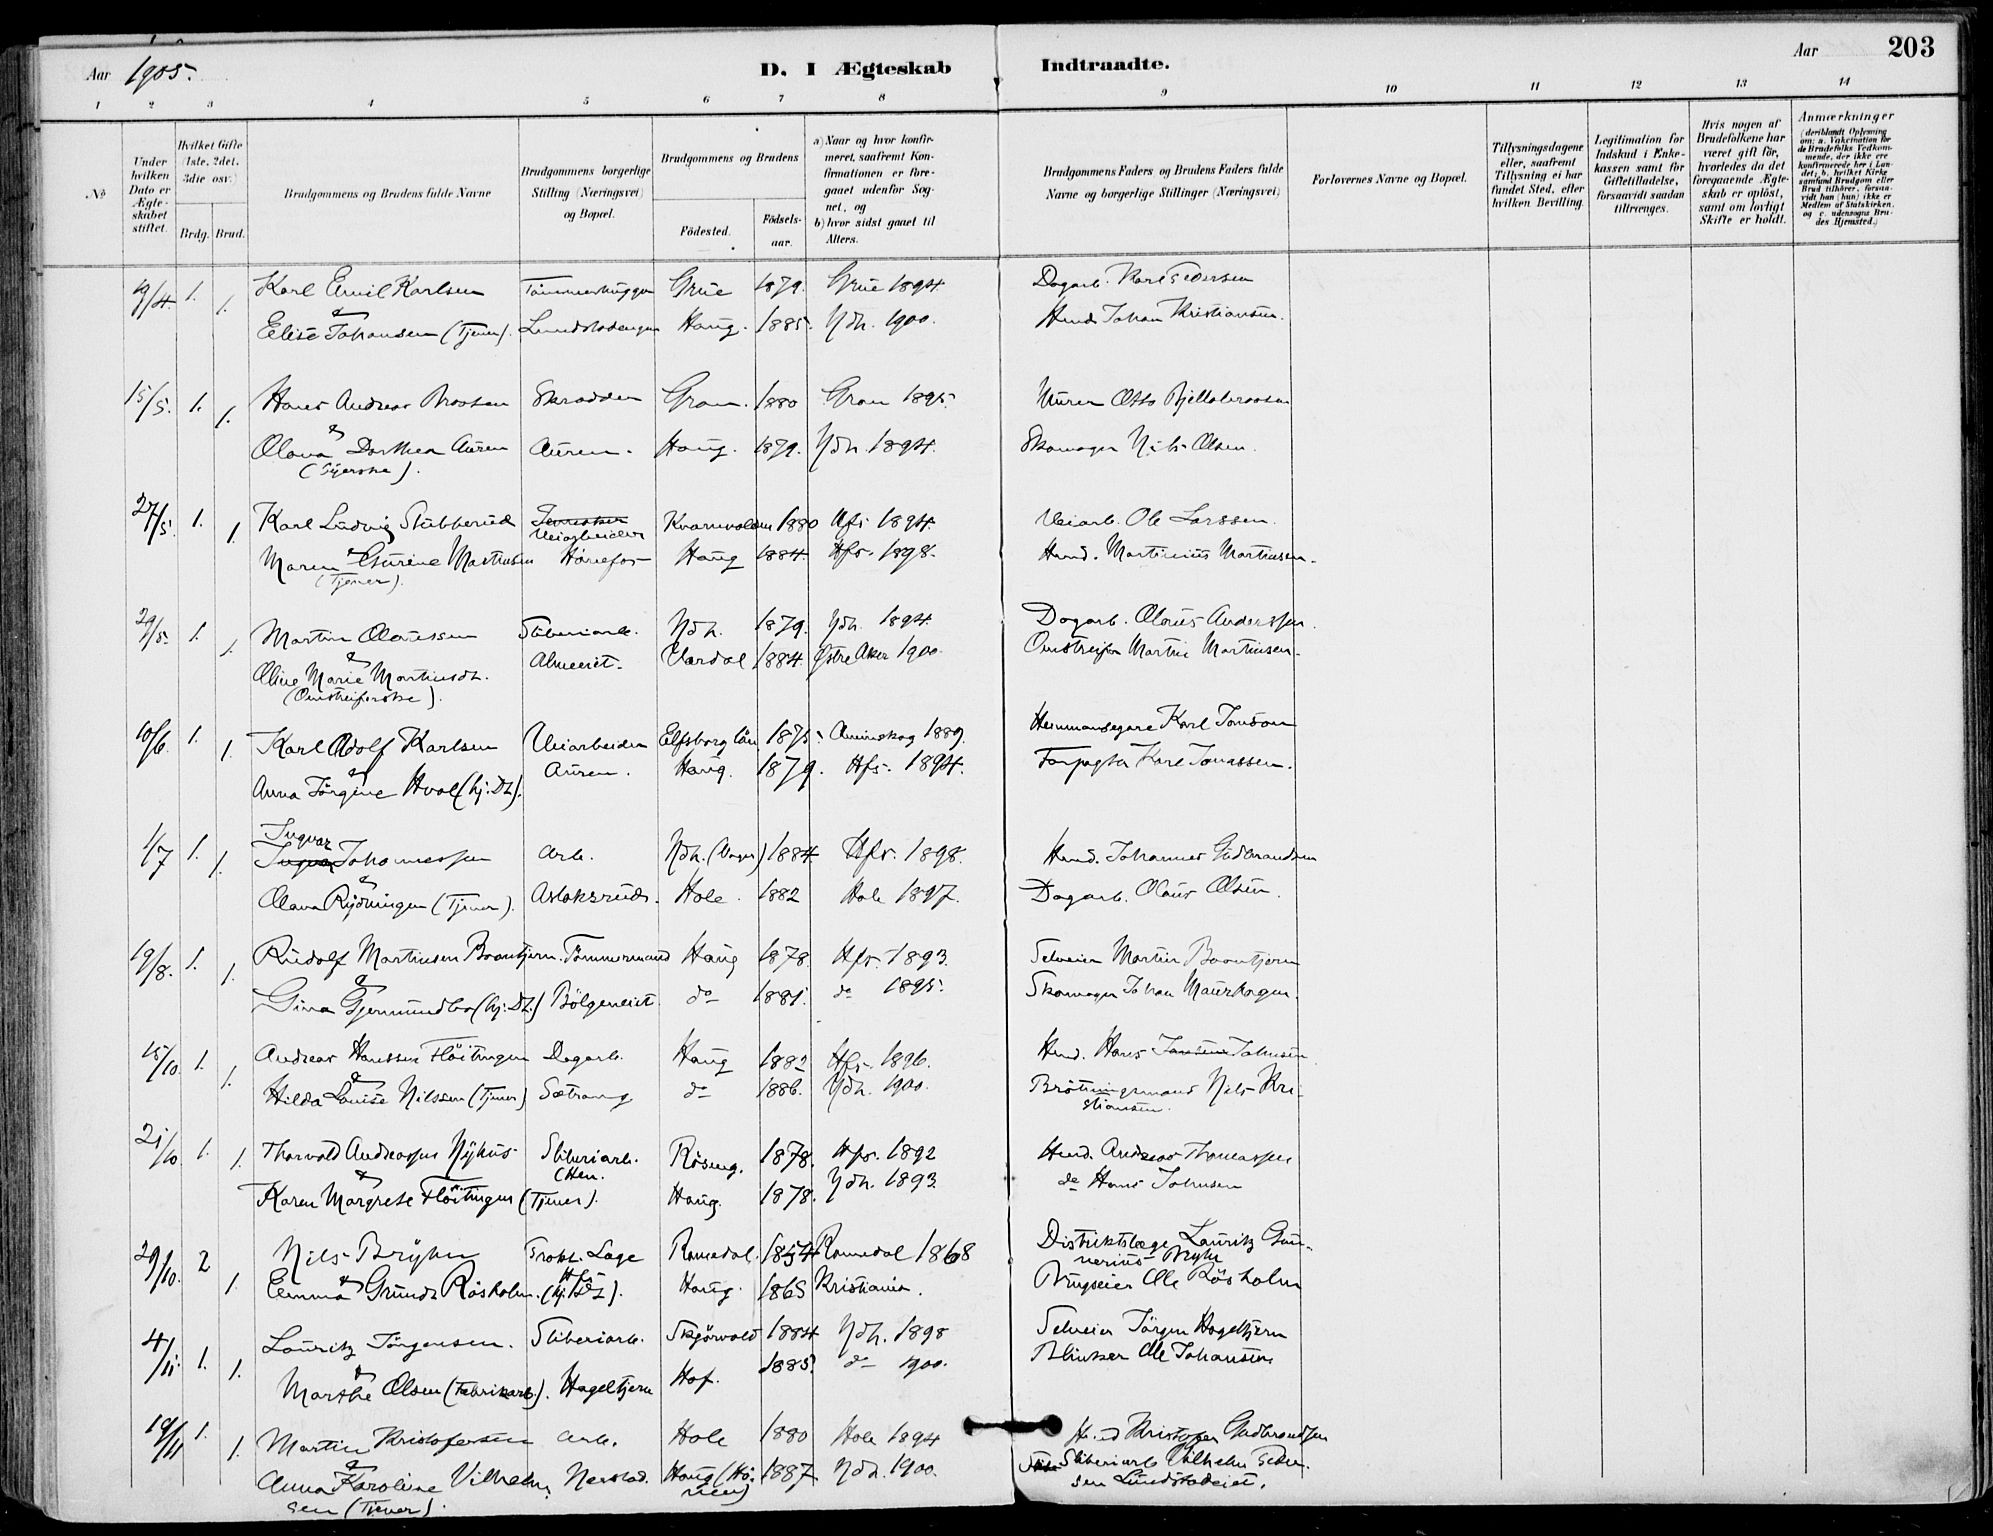 Aar 1905.
D. I Ægteskab Indtraadte.
Aar 203
1 2 3 4 5 6 7 8 9 10 11 12 13 14
No
Under hvilken Dato er Ægteskabet stiftet.
Hvilket Gifte (1ste, 2det, 3die osv.)
Brdg. Brud.
Brudgommens og Brudens fulde Navne
Brudgommens borgerlige Stilling (Næringsvei) og Bopæl.
Brudgommens og Brudens
Födested.
Födselsaar.
a) Naar og hvor konfirmeret, saafremt Konfirmationen er foregaaet udenfor Sognet, og
b) hvor sidst gaaet til Alters.
Brudgommens Faders og Brudens Faders fulde Navne og borgerlige Stillinger (Næringsvei)
Forlovernes Navne og Bopæl.
Tillysningsdagene eller, saafremt Tillysning ei har fundet Sted, efter hvilken Bevilling.
Legitimation for Indskud i Enkekassen samt for Giftetilladelse, forsaavidt saadan tiltrænges.
Hvis nogen af Brudefolkene har været gift för, hvorledes da det foregaaende Ægteskab er oplöst, samt om lovligt Skifte er holdt.
Anmærkninger (deriblandt Oplysning om: a. Vakcination for de Brudefolks Vedkommende, der ikke ere konfirmerede her i Landet; b. hvilket Kirkesamfund Brudgom eller Brud tilhörer, forsaavidt han (hun) ikke er Medlem af Statskirken, og c. udensogns Brudes Hjemsted.)
9/4. 1. 1. Karl Emil Karlsen Tömmerhugger Grue 1879. Grue 1894. Dagarb. Karl Pedersen
& Elise Johansen (Tjener). Lundstadengen Haug. 1885. Ndh. 1900. Husm. Johan Kristiansen.
15/5. 1. 1. Hans Andreas Braaten Skrædder Gran. 1880 Gran 1895. Murer Otto
& Olava Dorthea Auren Auren. Haug. 1879. Ndh. 1894. Skomager Nils Olsen.
(Syerske).
27/5. 1. 1. Karl Ludvig Stubberud Veiarbeider 1880 Hfs 1894. Veiarb. Ole Larssen.
Maren & Gurine Martinsen Hönefos Haug 1884. Hfs. 1898. Husm. Martinius Martinsen.
(Tjener).
29/5. 1. 1. Martin Olaussen Sliberiarb. Ndh. 1879. Ndh. 1894. Dagarb. Olaus Anderssen.
& Oline Marie Martinsdt. Almeiet. Vardal 1884. Östre Aker 1900. Omstreifer Martin Martinsen.
(Omstreiferske).
10/6. 1. 1. Karl Adolf Karlsen Veiarbeider Elfsborg län 1875. Ånimskog 1889. Hemmansegare Karl Jonsson
& Anna Jörgine Hval (hj. Dt.). Auren. Haug. 1879. Hfs. 1894. Forpagter Karl Jonassen.
1/7 1. 1. Ingvar Johannessen Arb. Ndh. 1884 Hfs. 1898. Husm. Johannes Gudbrandsen
& Olava Rydningen (Tjener). Aslaksrud. Hole. 1882 Hole 1897. Dagarb. Olaus Olsen.
19/8. 1. 1. Rudolf Martinsen Braatjern. Tömmermand Haug 1878. Hfs. 1893. Selveier Martin Braatjern
& Gina Gjermundbo (hj. Dt.) Bölgeneiet do 1881. do 1895. Skomager Johan Maurhagen.
15/10. 1. 1. Andreas Hanssen Flöitingen Dagarb. Haug 1882 Hfs. 1896. Husm. Hans Johnsen
& Hilda Louise Nilssen (Tjener) Sætrang do 1886. Ndh. 1900. Nils Kristiansen.
21/10. 1. 1. Thorvald Andreassen Nyhus Sliberiarb. Hen. 1878. Hfs. 1892 Husm. Andreas Thomassen
& Karen Margrete Flöitingen (Tjener). Haug. 1878. Ndh. 1893. do Hans Johnsen
29/10. 2 1. Nils Bryhn Prakt. Læge Romedal. 1854 Romedal 1868 Distriktslæge Lauritz Gunnerius Bryhn
& Emma Gunda Rösholm. Hfs (hj. Dt). Haug. 1865 Kristiania. Brugseier Ole Rösholm
4/11. 1. 1. Lauritz Jörgensen. Sliberiarb. 1884 Ndh. 1898 Selveier Jörgen Hageltjern
& Marthe Olsen (Fabrikarb.). Hageltjern Hof. 1885. do 1900. Ole Johansen
19/11 1. 1. Martin Kristofersen Arb. Hole 1880 Hole 1894 Husm Kristofer Gudbrandsen
& Anna Karoline Vilhelmsen (Tjener). Nerstad. Haug 1887 Ndh. 1900. Sliberiarb Vilhelm Pedersen Lundstadeiet.